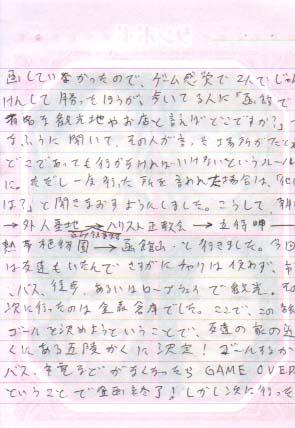 画していなかったので、ゲーム感覚で2人でじゃん
けんして勝ったほうが、歩いてる人に「函館で
有名な観光地やお店と言えばどこですか?」
なふうに聞いて、その人が言った場所がたとえ
どこであっても行かなければいけないというルール
に。ただし一度行った所を言われた場合は、「他に
は?」と聞きなおすようにしました。こうして、
→外人墓地→ハリスト正教会→立待岬
熱帯植物園→函館山 と行きました。今回
は友達もいたんでさすがにチャリは使わず、市
、バス、徒歩、あるいはロープウェイで観光。その
次に行ったのは金森倉庫でした。ここで、この旅
ゴールを決めようということで、友達の家の近
くにある五稜かくに決定!ゴールするか
バス、市電などがなくなったらGAME OVER
ということで企画終了!しかし次に行った